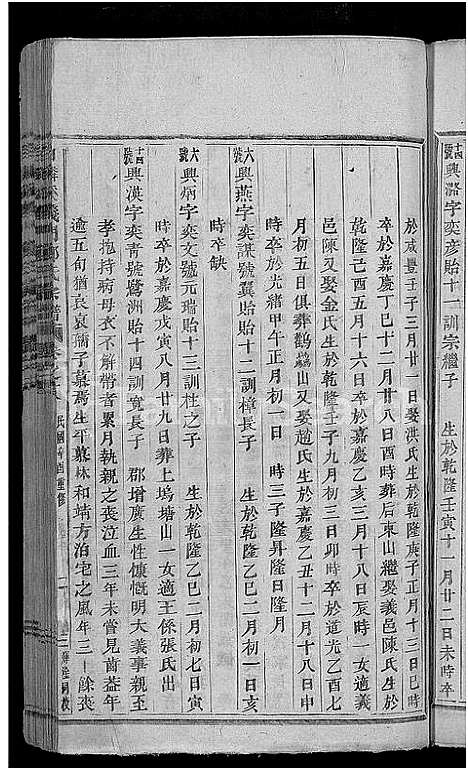 十四號興潞字奕彥貽十一訓宗繼子　生於乾隆壬寅十一月廿二日未時卒
於咸豐壬子三月廿一日娶洪氏生於乾隆庚子正月十三日巳時
卒於嘉慶丁巳十二月廿八日酉時葬后東山繼娶義邑陳氏生於
乾隆己酉五月十六日卒於嘉慶乙亥三月十八日辰時一女適義
邑陳又娶金氏生於乾隆壬子九月初三日卯時卒於道光乙酉七
月初五日俱葬鸛鷀山又娶趙氏生於嘉慶乙丑十二月十八日中
時卒於光緒甲午正月初一日　時三子隆昇隆日隆月
六號興燕字奕謀號冀貽十二訓樟長子　生於乾隆乙巳二月初一日亥
時卒缺
六號興炳字奕文號元瑞貽十三訓杜之子　生於乾隆乙巳二月初七日寅
時卒於嘉慶戊寅八月廿九日葬上塢塘山一女適王係張氏出
十四號興漢字奕青號鷺洲貽十四訓寬長子　郡增廣生性慷慨明大義事親至
孝抱持病母衣不解帶者累月執親之喪泣血三年未嘗見齒葢年
逾五旬猶哀哀孺子慕焉生平慕林和靖方泊宅之風年三十餘喪
民國辛酉重修